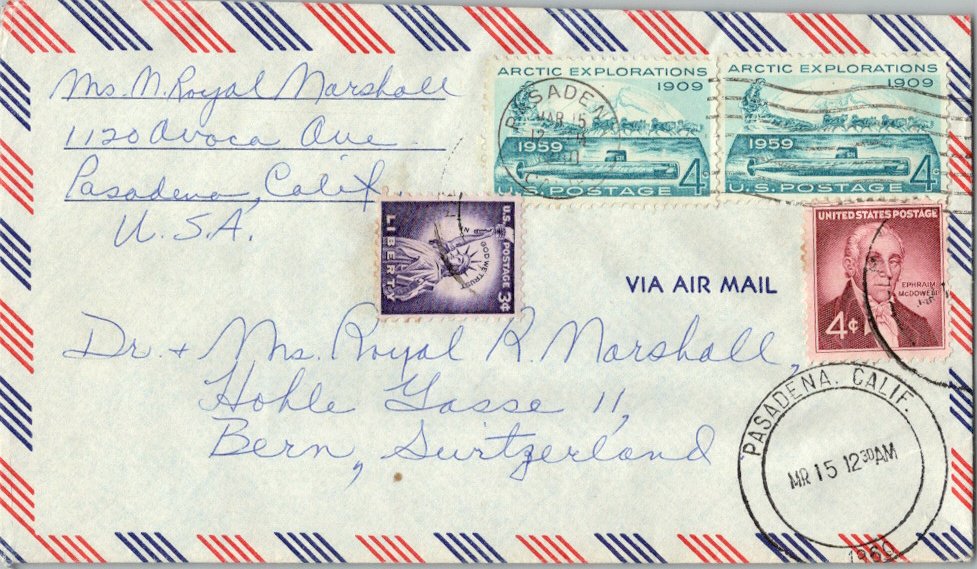 Ms. N. Royal Marshall
1120 Avoca Ave.
Pasadena, Calif
U.S.A.
ARCTIC EXPLORATIONS
1909
1959
U.S. POSTAGE 4¢
ARCTIC EXPLORATIONS
1909
1959
U.S. POSTAGE 4¢
PASADENA
MAR 15
12
LIBERTY
U.S. POSTAGE 3¢
IN GOD WE TRUST
UNITED STATES POSTAGE
EPHRAIM
McDOWELL
4¢
VIA AIR MAIL
Dr. + Ms. Royal R. Marshall,
Hohle Gasse 11,
Bern, Switzerland
PASADENA, CALIF.
MR 15 12 30 AM
1960